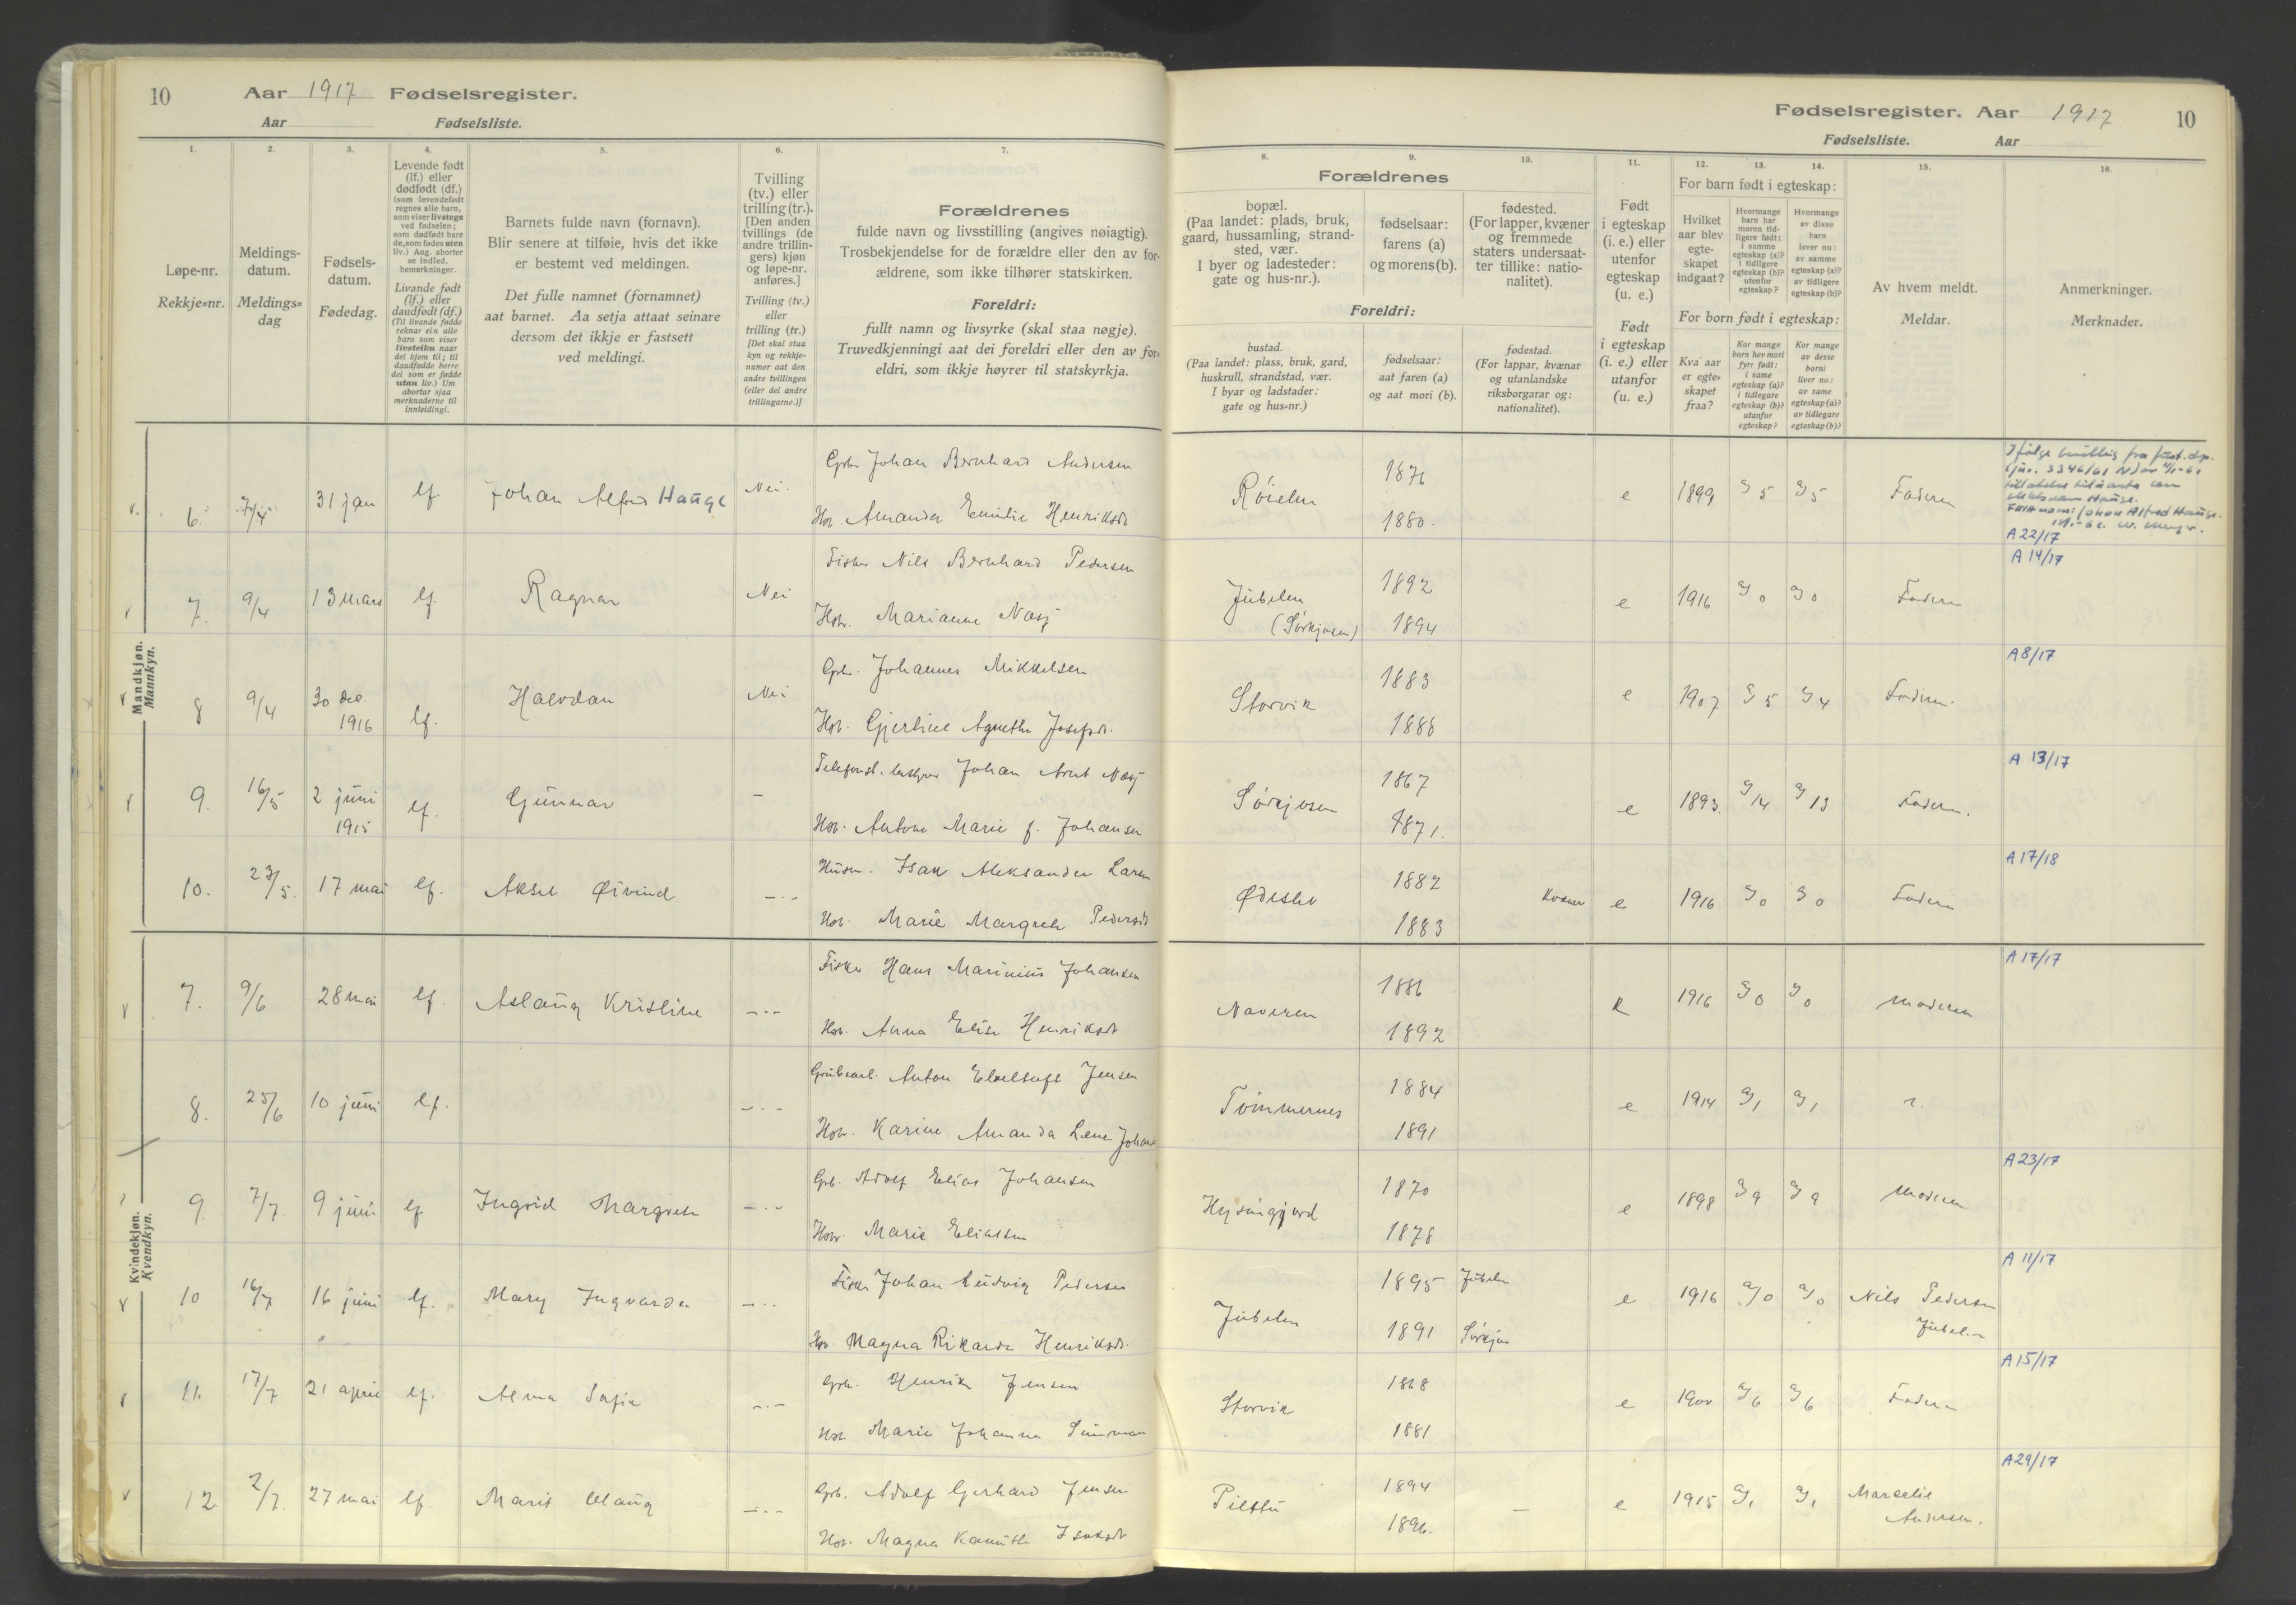 10 Aar 1917 Fødselsregister.
Aar Fødselsliste.
1.
2.
3.
4.
5.
6.
7.
Løpe-nr.
Rekkje=nr.
Meldings-
datum.
Meldings=
dag
Fødsels-
datum.
Fødedag.
Levende født
(lf.) eller
dødfødt (df.)
(som levendefødt
regnes alle barn,
som viser livstegn
ved fødselen;
som dødfødt bare
de, som fødes uten
liv.) Ang. aborter
se indled.
bemerkninger.
Livande født
(lf.) eller
daudfødt (df.)
(Til livande fødde
reknar ein alle
barn som viser
livsteikn naar
dei kjem til; til
daudfødde berre
dei som er fødde
utan liv.) Um
abortar sjaa
merknaderne til
innleidingi.
Barnets fulde navn (fornavn).
Blir senere at tilføie, hvis det ikke
er bestemt ved meldingen.
Det fulle namnet (fornamnet)
aat barnet. Aa setja attaat seinare
dersom det ikkje er fastsett
ved meldingi.
Tvilling
(tv.) eller
trilling (tr.).
[Den anden
tvillings (de
andre trillin-
gers) kjøn
og løpe-nr.
anføres.]
Tvilling (tv.)
eller
trilling (tr.)
[Det skal staa
kyn og rekkje-
numer aat den
andre tvillingen
(eller dei andre
trillingarne.)]
Forældrenes
fulde navn og livsstilling (angives nøiagtig).
Trosbekjendelse for de forældre eller den av for-
ældrene, som ikke tilhører statskirken.
Foreldri:
fullt namn og livsyrke (skal staa nøgje).
Truvedkjenningi aat dei foreldri eller den av for-
eldri, som ikkje høyrer til statskyrkja.
Mandkjøn.
Mannkyn.
6. 7/4 31 jan lf. Johan Alfred Hauge Nei.
Grbr Johan Bernhard Andersen
Hor. Amanda Emilie Henriksdt
7. 9/4 13 mars lf. Ragnar Nei
Fisker Nils Bernhard Pedersen
Hstr. Marianne Næsj
8 9/4 30 dec. 1916 lf. Halvdan Nei
Grbr. Johannes Mikkelsen
Hstr. Gjertine Agnethe Josefsdt.
9. 16/5 2 juni 1915 lf. Gunnar -
Telefonst. bestyrer Johan Arnt Næsj
Hstr. Antone Marie f. Johansen
10. 23/5. 17 mai lf. Aksel Øivind -.-
Husm. Isak Aleksander Larsen
Hstr. Marie Margrete Pedersdt
Kvindekjøn.
Kvendkyn.
7. 9/6 28 mai lf. Aslaug Kristine -.-
Fisker Hans Marinius Johansen
Hstr. Anna Elise Henriksdt
8. 25/6 10 juni lf. -.-
Grubearb. Anton Jensen
Hstr. Karine Amanda Lene
9. 7/7. 9 juni lf Ingrid Margrete -.-
Grb. Adolf Elias Johansen
Hstr. Marie Eliassen
10 16/7 16 juni lf. Mary Ingvarda -.-
Fisker Johan Ludvig Pedersen
Hstr. Magna Rikarda Henriksdt.
11. 17/7 21 april lf. Alma Sofie -.-
Grb. Henrik Jensen
Hstr. Marie Johanna
12 2/7. 27 mai lf. Marit -.-
Grb. Adolf Gerhard Jensen
Hstr. Magna Isaksdt
Fødselsregister. Aar 1917 10
Fødselsliste. Aar
8.
9.
10.
11.
12.
13.
14.
15.
16.
Forældrenes
bopæl.
(Paa landet: plads, bruk,
gaard, hussamling, strand-
sted, vær.
I byer og ladesteder:
gate og hus-nr.).
fødselsaar:
farens (a)
og morens (b).
fødested.
(For lapper, kvæner
og fremmede
staters undersaat-
ter tillike: natio-
nalitet).
Foreldri:
bustad.
(Paa landet: plass, bruk, gard,
huskrull, strandstad, vær.
I byar og ladstader:
gate og hus=nr.)
fødselsaar:
aat faren (a)
og aat mori (b).
fødestad.
(For lappar, kvænar
og utanlandske
riksborgarar og:
nationalitet).
Født
i egteskap
(i. e.) eller
utenfor
egteskap
(u. e.)
Født
i egteskap
(i. e.) eller
utanfor
(u. e.)
For barn født i egteskap:
Hvilket
aar blev
egte-
skapet
indgaat?
Hvormange
barn har
moren tid-
ligere født:
i samme
egteskap (a)?
i tidligere
egteskap (b)?
utenfor
egteskap?
Hvormange
av disse
barn
lever nu:
av samme
egteskap (a)?
av tidligere
egteskap (b)?
For born født i egteskap:
Kva aar
er egte=
skapet
fraa?
Kor mange
born hev mori
fyrr født:
i same
egteskap (a)?
i tidlegare
egteskap (b)?
utanfor
egteskap?
Kor mange
av desse
borni
liver no:
av same
egteskap (a)?
av tidlegare
egteskap (b)?
Av hvem meldt.
Meldar.
Anmerkninger.
Merknader.
Røielen 1876 1880. e 1899 a) 5 a) 5 Faderen
Ifølge bevilling fra just.dep.
Jnr. 3346/61
Hauge.
Fullt navn: Johan Alfred Hauge.
A 22/17
Jubelen (Sørkjosen) 1892 1894 e 1916 a) 0 a) 0 Faderen A 14/17
Storvik 1883 1888 e 1907 a) 5 a) 4 Faderen A 8/17
Sørkjosen 1867 1871. e 1893. a) 14 a) 13 Faderen. A 13/17
1882 1883 Kvæner e 1916 a) 0 a) 0 Faderen A 17/18
Naveren 1886 1892 e 1916 a) 0 a) 0 Moderen A 17/17
Tømmernes 1884 1891 e 1914 a) 1 a) 1
1870 1878 e 1898 a) 9 a) 9 Moderen A 23/17
Jubelen 1895 Jubelen 1891 Sørkjos e 1916 a) 0 a) 0 Nils Pedersen Jubelen A 11/17
Storvik 1868 1881 e 1900 a) 6 a) 6 Faderen A 15/17
1894 1896. - e 1915 a) 1 a) 1 Marselie Andersen. A 29/17